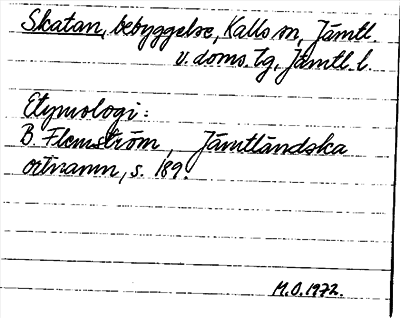 Skatan, bebyggelse, Kalls sn, Jämtl.
v. doms. tg, Jämtl. l.
Etymologi:
B. Flemström, Jämtländska
ortnamn, s. 189.
M.O. 1972.